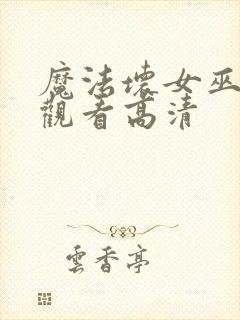 魔法壞女巫
觀看高清
雲香亭